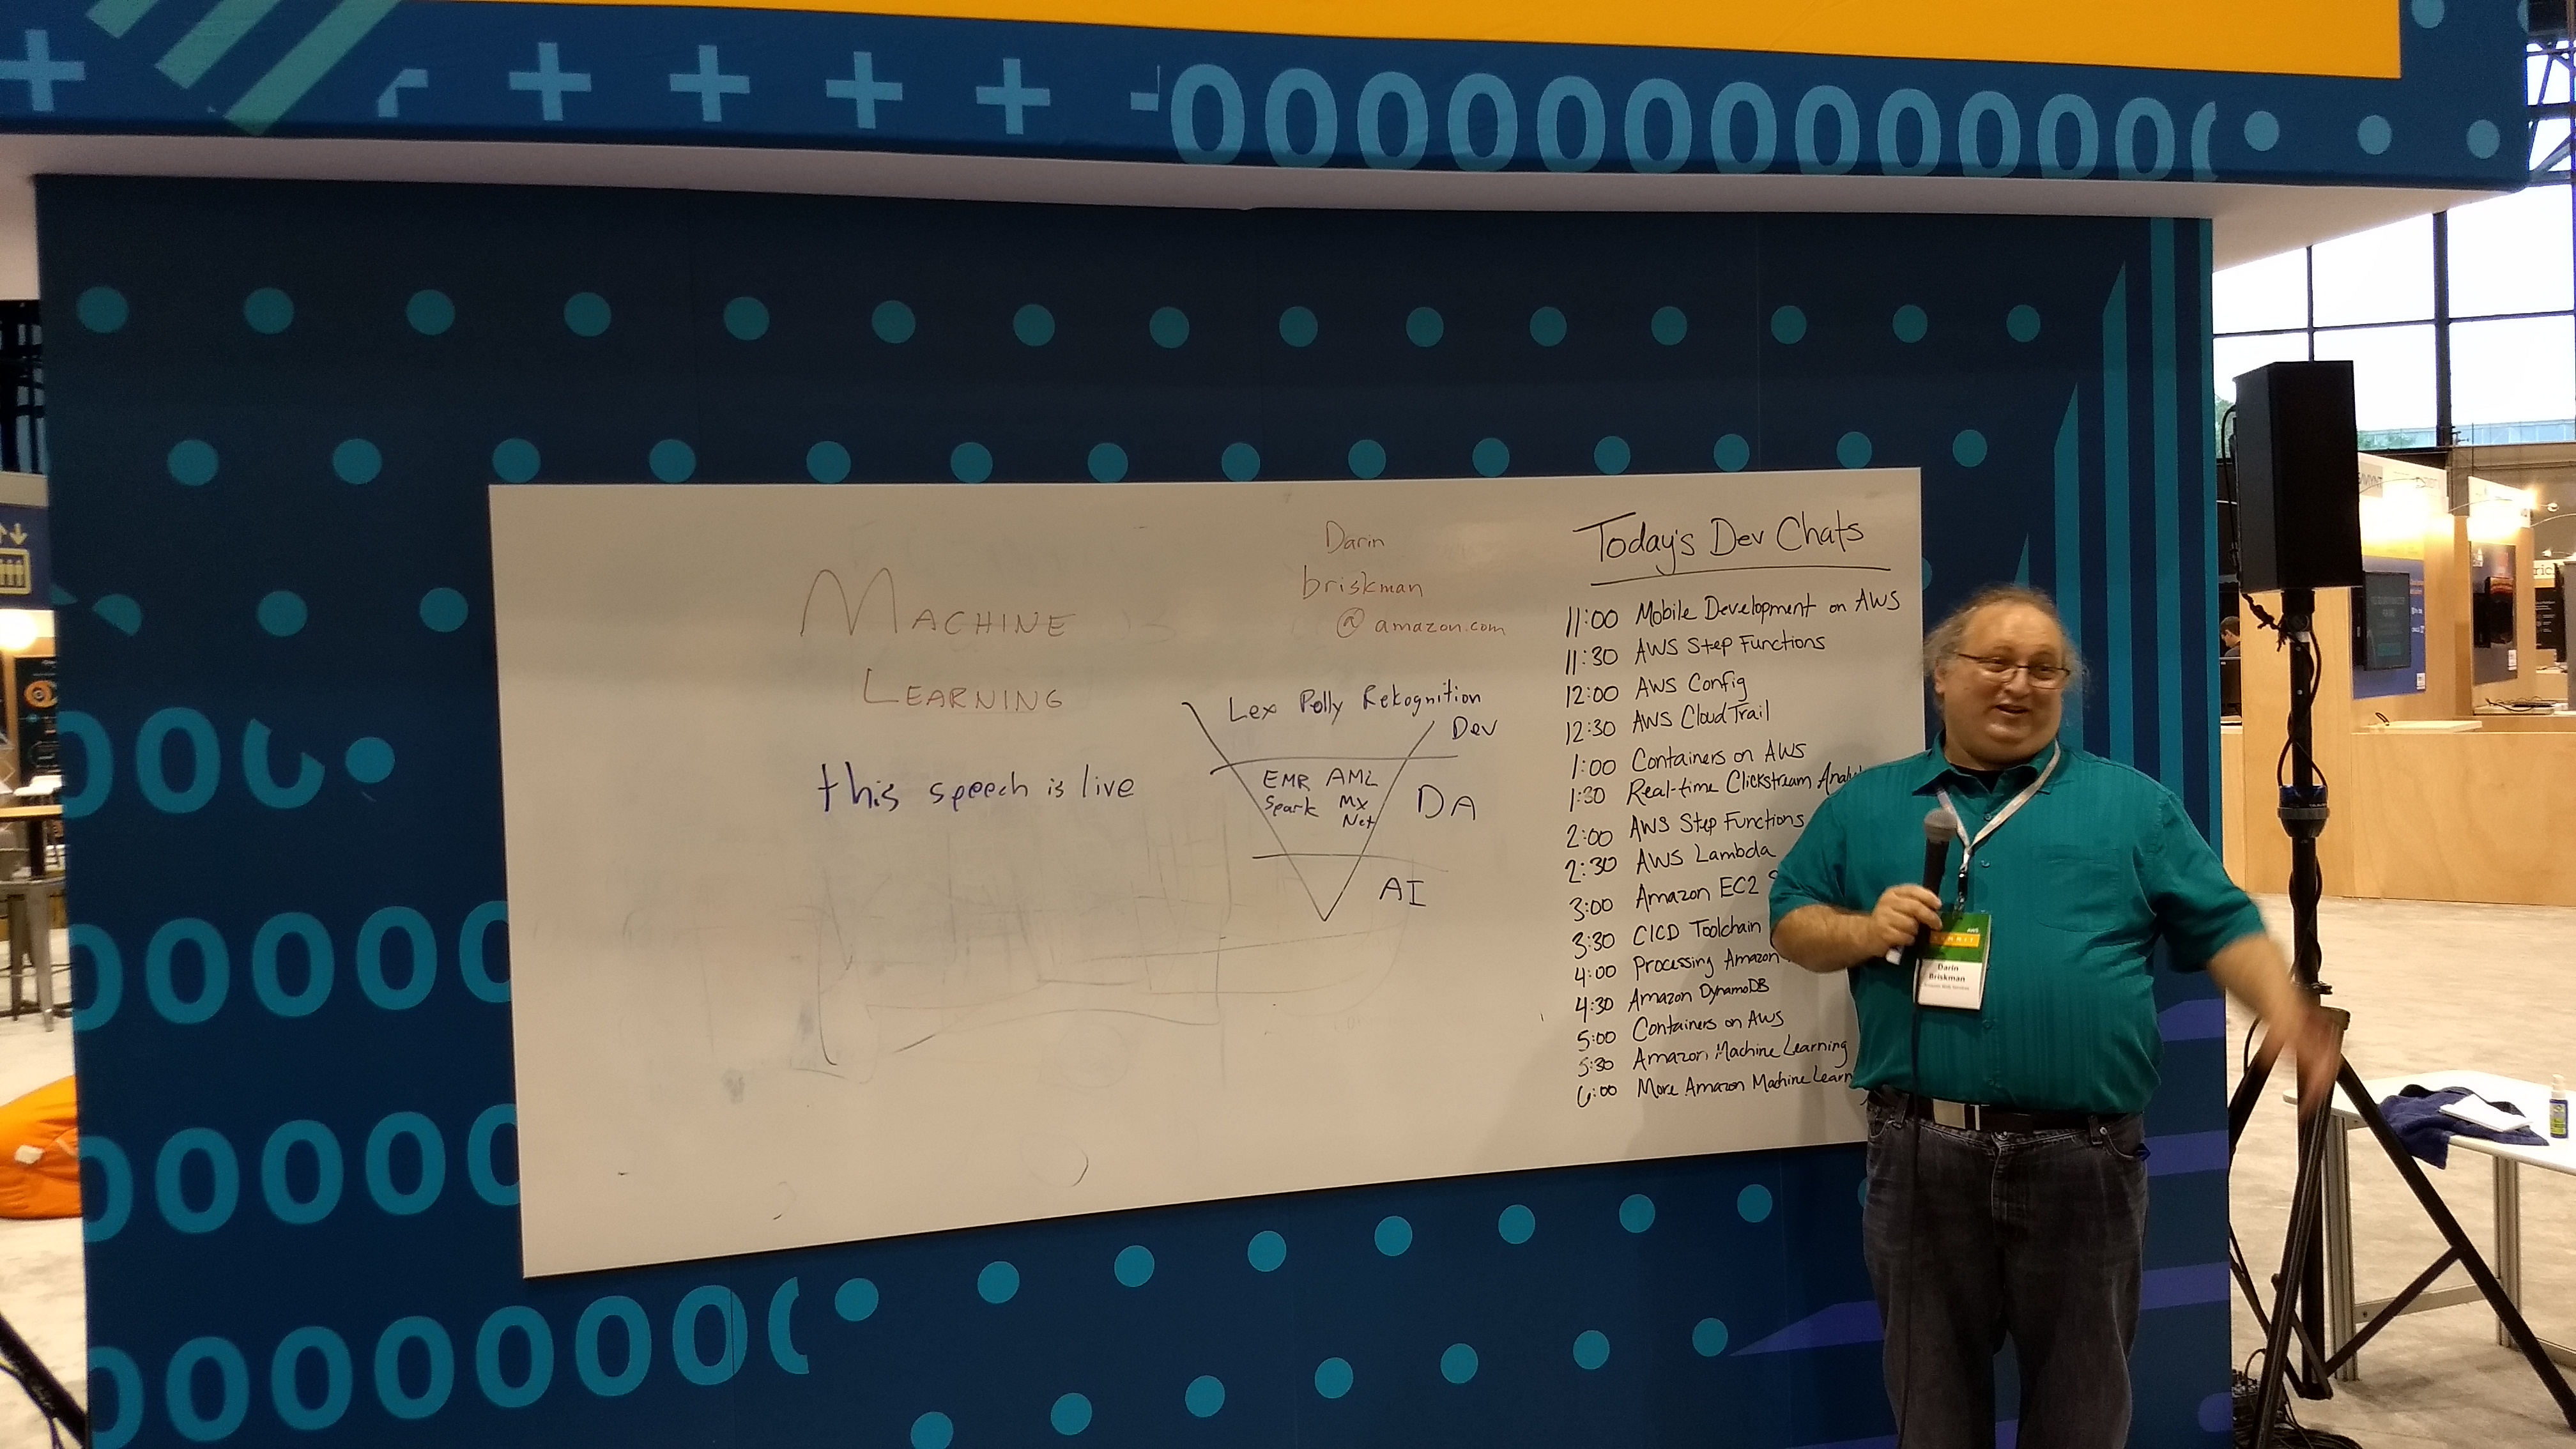 MACHINE
LEARNING
this speech is live
Darin
briskman
@ amazon.com
Lex Polly Rekognition
Dev
EMR AML
Spark MX
Net
DA
AI
Today's Dev Chats
11:00 Mobile Development on AWS
11:30 AWS Step Functions
12:00 AWS Config
12:30 AWS CloudTrail
1:00 Containers on AWS
1:30 Real-time Clickstream
2:00 AWS Step Functions
2:30 AWS Lambda
3:00 Amazon EC2
3:30 CICD Toolchain
4:00 Processing Amazon
4:30 Amazon DynamoDB
5:00 Containers on AWS
5:30 Amazon Machine Learning
6:00 More Amazon Machine Learn
AWS
Darin
Briskman
Amazon Web Services